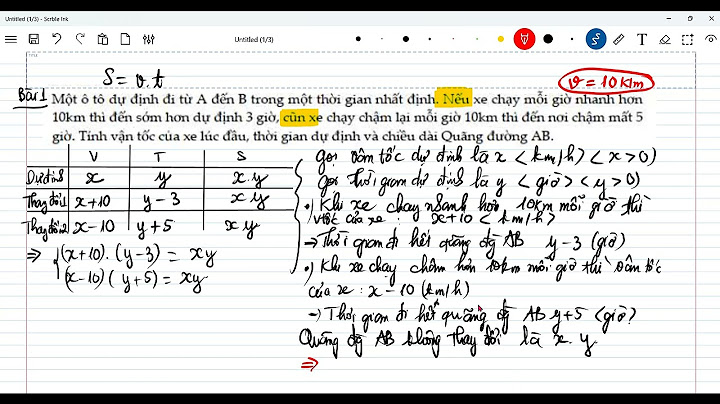 Untitled (1/3) - Scrble Ink
Untitled (1/3)
TITLE
S = v.t
v = 10 km
Bài 1 Một ô tô dự định đi từ A đến B trong một thời gian nhất định. Nếu xe chạy mỗi giờ nhanh hơn
10km thì đến sớm hơn dự định 3 giờ, cũn xe chạy chậm lại mỗi giờ 10km thì đến nơi chậm mất 5
giờ. Tính vận tốc của xe lúc đầu, thời gian dự định và chiều dài Quãng đường AB.
V T S
Dự định x y x.y
Thay đổi 1 x+10 y-3 x y
Thay đổi 2 x-10 y+5 x y
=> (x+10).(y-3) = xy
(x-10)(y+5) = xy
gọi vâm tốc dự định là x <km/h) <x>0)
gọi thời gian dự định là y <giờ> <y>0)
•) Khi xe chạy nhanh hơn 10km mỗi giờ thì
vtốc của xe : x+10 <km/h>
-> Thời gian đi hết quãng đg AB y-3 (giờ)
•) Khi xe chạy chậm hơn 10km mỗi giờ thì vâm tốc
của xe : x-10 (km/h)
-> Thời gian đi hết quãng đg AB y+5 <giờ>
Quãng đg AB không thay đổi là x.y
=>